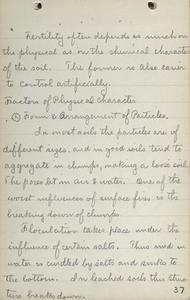 Fertility often depends as much on
the physical as on the chemical character
of the soil. The former is also easier
to control artificially.
Factors of Physical Character
① Form & Arrangement of Particles.
In most soils the particles are of
different sizes, and in good soils tend to
aggregate in clumps, making a loose soil.
The pores let in air & water. One of the
worst influences of surface fires is the
breaking down of clumps.
Flocculation takes place under the
influence of certain salts. Thus mud in
water is curdled by salts and sinks to
the bottom. In leached soils this struc
ture breaks down.
37